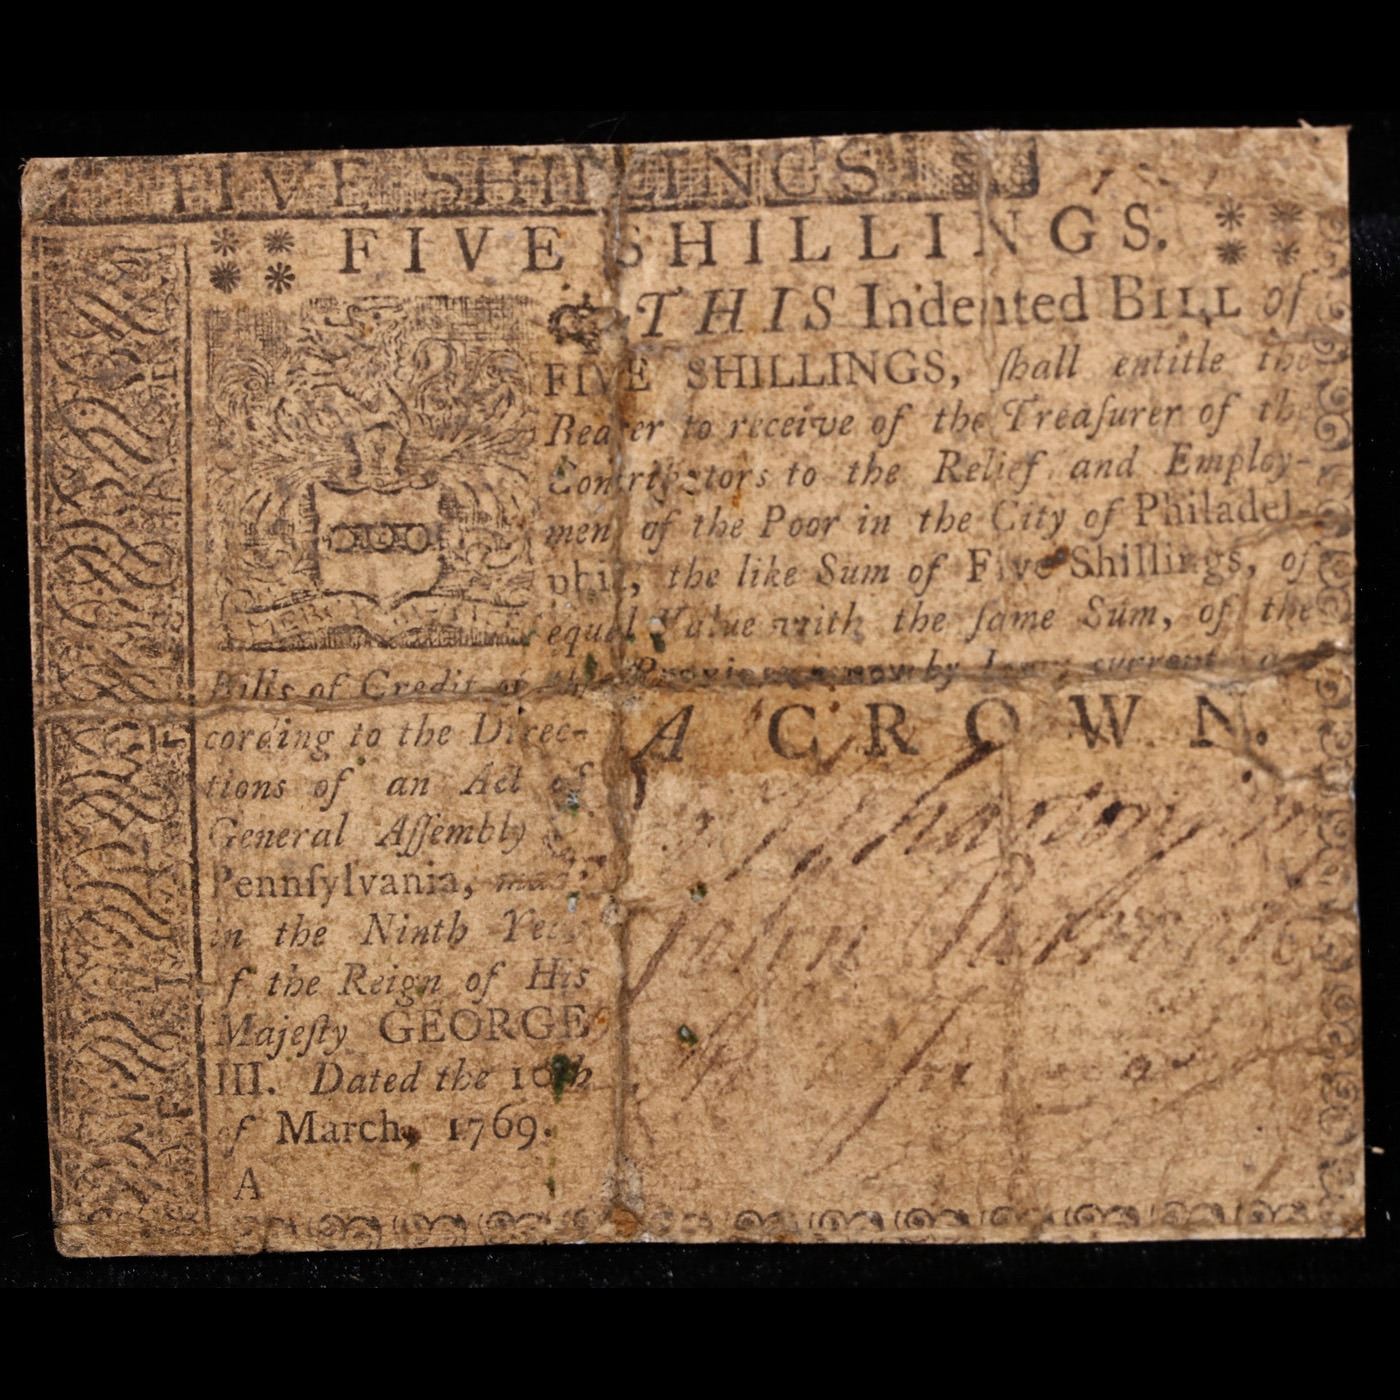 FIVE SHILLINGS
FIVE SHILLINGS.
THIS Indented BILL of
FIVE SHILLINGS, ſhall entitle the
Bearer to receive of the Treaſurer of the
Contributors to the Relief and Employ-
ment of the Poor in the City of Philadel-
phia, the like Sum of Five Shillings, of
equal Value with the ſame Sum, of the
Bills of Credit of this Province now by Law current, ac-
cording to the Direc-
tions of an Act of
General Aſſembly of
Pennſylvania, made
in the Ninth Year
of the Reign of His
Majeſty GEORGE
III. Dated the 10th
of March, 1769.
A
A CROWN.
John